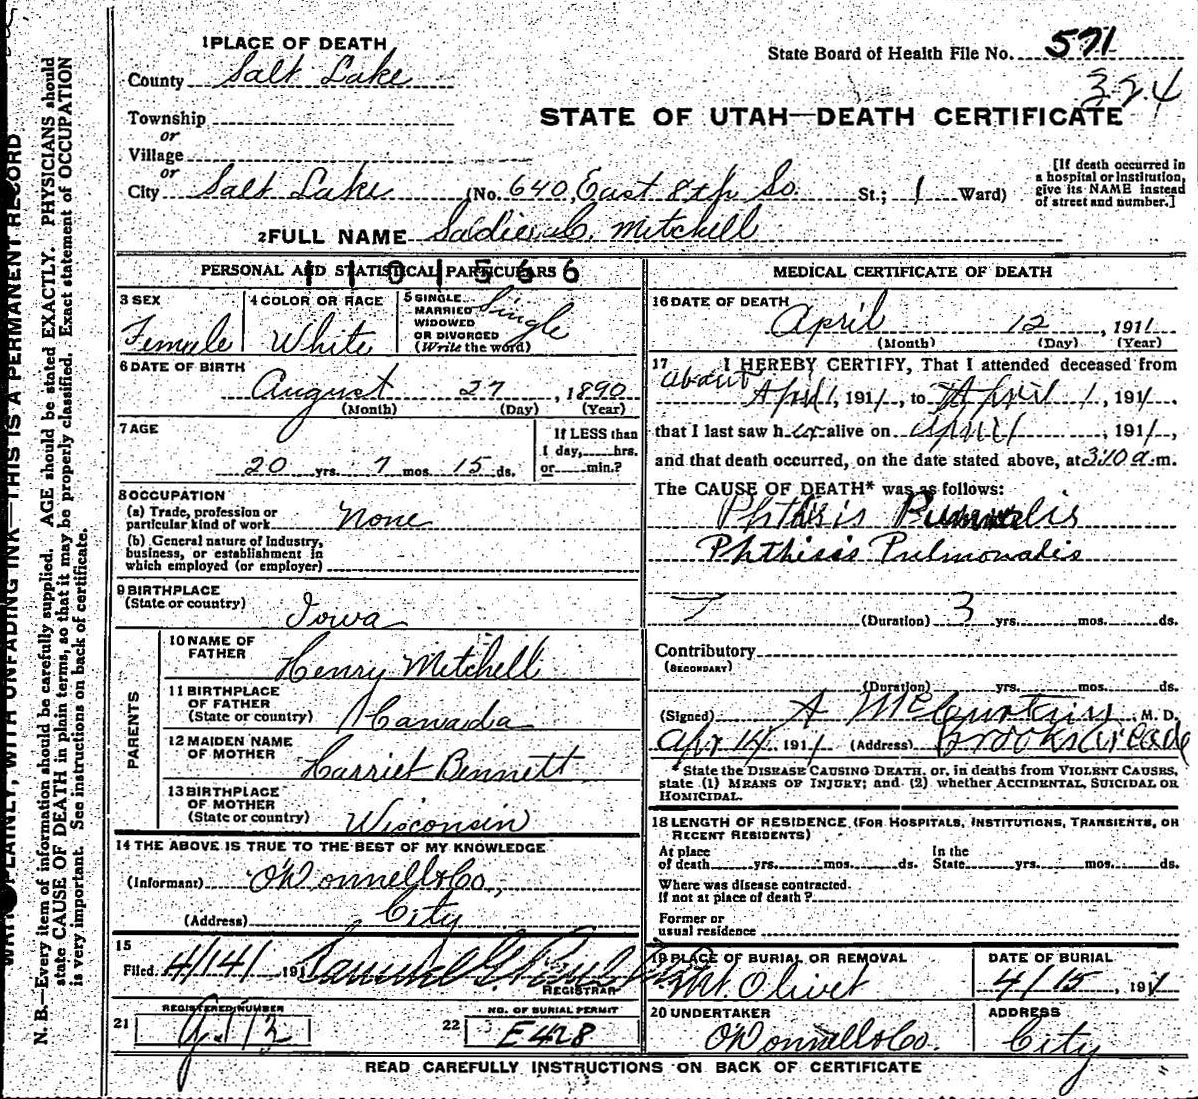 1 PLACE OF DEATH
State Board of Health File No. 571
County Salt Lake
324
Township
STATE OF UTAH—DEATH CERTIFICATE
or
Village
or
City Salt Lake (No. 640, East 8th So. St.; 1 Ward)
[If death occurred in a hospital or institution, give its NAME instead of street and number.]
2 FULL NAME Sadie C. Mitchell
PERSONAL AND STATISTICAL PARTICULARS
1101566
3 SEX
Female
4 COLOR OR RACE
White
5 SINGLE
MARRIED
WIDOWED
OR DIVORCED
(Write the word)
Single
6 DATE OF BIRTH
August 27, 1890
(Month) (Day) (Year)
7 AGE
20 yrs. 7 mos. 15 ds.
If LESS than
1 day,......hrs.
or......min.?
8 OCCUPATION
(a) Trade, profession or
particular kind of work None
(b) General nature of industry,
business, or establishment in
which employed (or employer)
9 BIRTHPLACE
(State or country) Iowa
PARENTS
10 NAME OF
FATHER Henry Mitchell
11 BIRTHPLACE
OF FATHER
(State or country) Canada
12 MAIDEN NAME
OF MOTHER Harriet Bennett
13 BIRTHPLACE
OF MOTHER
(State or country) Wisconsin
14 THE ABOVE IS TRUE TO THE BEST OF MY KNOWLEDGE
(Informant) O'Donnell & Co.,
(Address) City
15
Filed 4/14/, 191
REGISTRAR
REGISTERED NUMBER
21
NO. OF BURIAL PERMIT
22 E428
MEDICAL CERTIFICATE OF DEATH
16 DATE OF DEATH
April 12, 1911
(Month) (Day) (Year)
17 I HEREBY CERTIFY, That I attended deceased from
about April 1, 1911, to April 1, 1911,
that I last saw her alive on April 1, 1911,
and that death occurred, on the date stated above, at 3:10 a.m.
The CAUSE OF DEATH* was as follows:
Phthisis
Phthisis Pulmonalis
(Duration) 3 yrs. mos. ds.
Contributory
(SECONDARY)
(Duration) yrs. mos. ds.
(Signed) A M. D.
Apr 14, 1911 (Address) Brooks Arcade
* State the DISEASE CAUSING DEATH, or, in deaths from VIOLENT CAUSES,
state (1) MEANS OF INJURY; and (2) whether ACCIDENTAL, SUICIDAL OR
HOMICIDAL.
18 LENGTH OF RESIDENCE (FOR HOSPITALS, INSTITUTIONS, TRANSIENTS, OR
RECENT RESIDENTS)
At place In the
of death yrs. mos. ds. State yrs. mos. ds.
Where was disease contracted.
If not at place of death?
Former or
usual residence
19 PLACE OF BURIAL OR REMOVAL
Mt. Olivet
DATE OF BURIAL
4/15, 1911
20 UNDERTAKER
O'Donnell & Co.
ADDRESS
City
READ CAREFULLY INSTRUCTIONS ON BACK OF CERTIFICATE
PLAINLY, WITH UNFADING INK—THIS IS A PERMANENT RECORD
N. B.—Every item of information should be carefully supplied. AGE should be stated EXACTLY. PHYSICIANS should
state CAUSE OF DEATH in plain terms, so that it may be properly classified. Exact statement of OCCUPATION
is very important. See instructions on back of certificate.